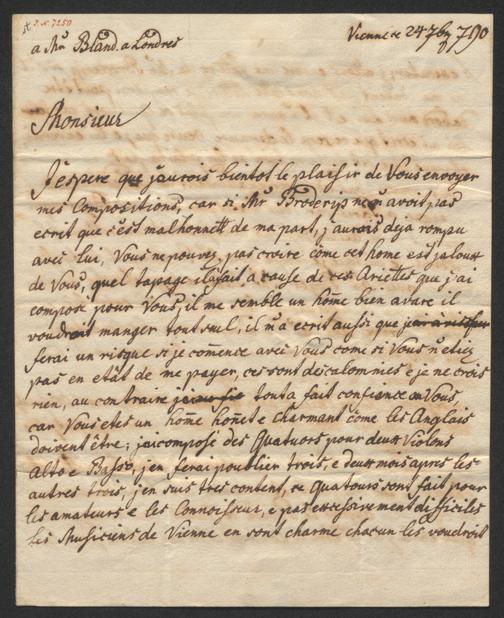 J.N. 7250
a Mr Bland. a Londres
Vienne ce 24 7b 790
Monsieur
J'espere que j'aurois bientot le plaisir de Vous envoyer
mes Compositions, car si Mr Broderip ne m avoit pas
ecrit que c'est malhonnett de ma part, j'aurois deja rompu
avec lui, Vous ne pouvez pas croire come cet home est jaloux
de Vous, quel tapage il a fait a cause de ces Ariettes que j'ai
composé pour Vous, il me semble un home bien avare il
voudroit manger tout seul, il m'a ecrit aussi que
ferai un risque si je comence avec Vous come si Vous n'etiez
pas en etât de me payer, ces sont des calomnies e je ne crois
rien, au contraire tout a fait confience a Vous,
car Vous etes un home honete e charmant come les Anglais
doivent être; j'ai composé des Quatuors pour deux Violons
Alto e Basso, j'en ferai poublier trois, e deux mois apres les
autres trois, j'en suis tres content, ce Quatours sont fait pour
les amateurs e les Connoisseur, e pas excessivement difficiles
les Musiciens de Vienne en sont charmé chacun les voudroit